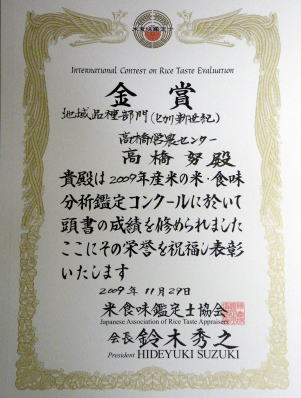 International Contest on Rice Taste Evaluation
金賞
地域品種部門(ヒカリ新世紀)
高橋営農センター
高橋努殿
貴殿は2009年産米の米・食味
分析鑑定コンクールに於いて
頭書の成績を修められました
ここにその栄誉を祝福し表彰
いたします
2009年11月29日
米食味鑑定士協会
Japanese Association of Rice Taste Appraisers
会長 鈴木秀之
President HIDEYUKI SUZUKI